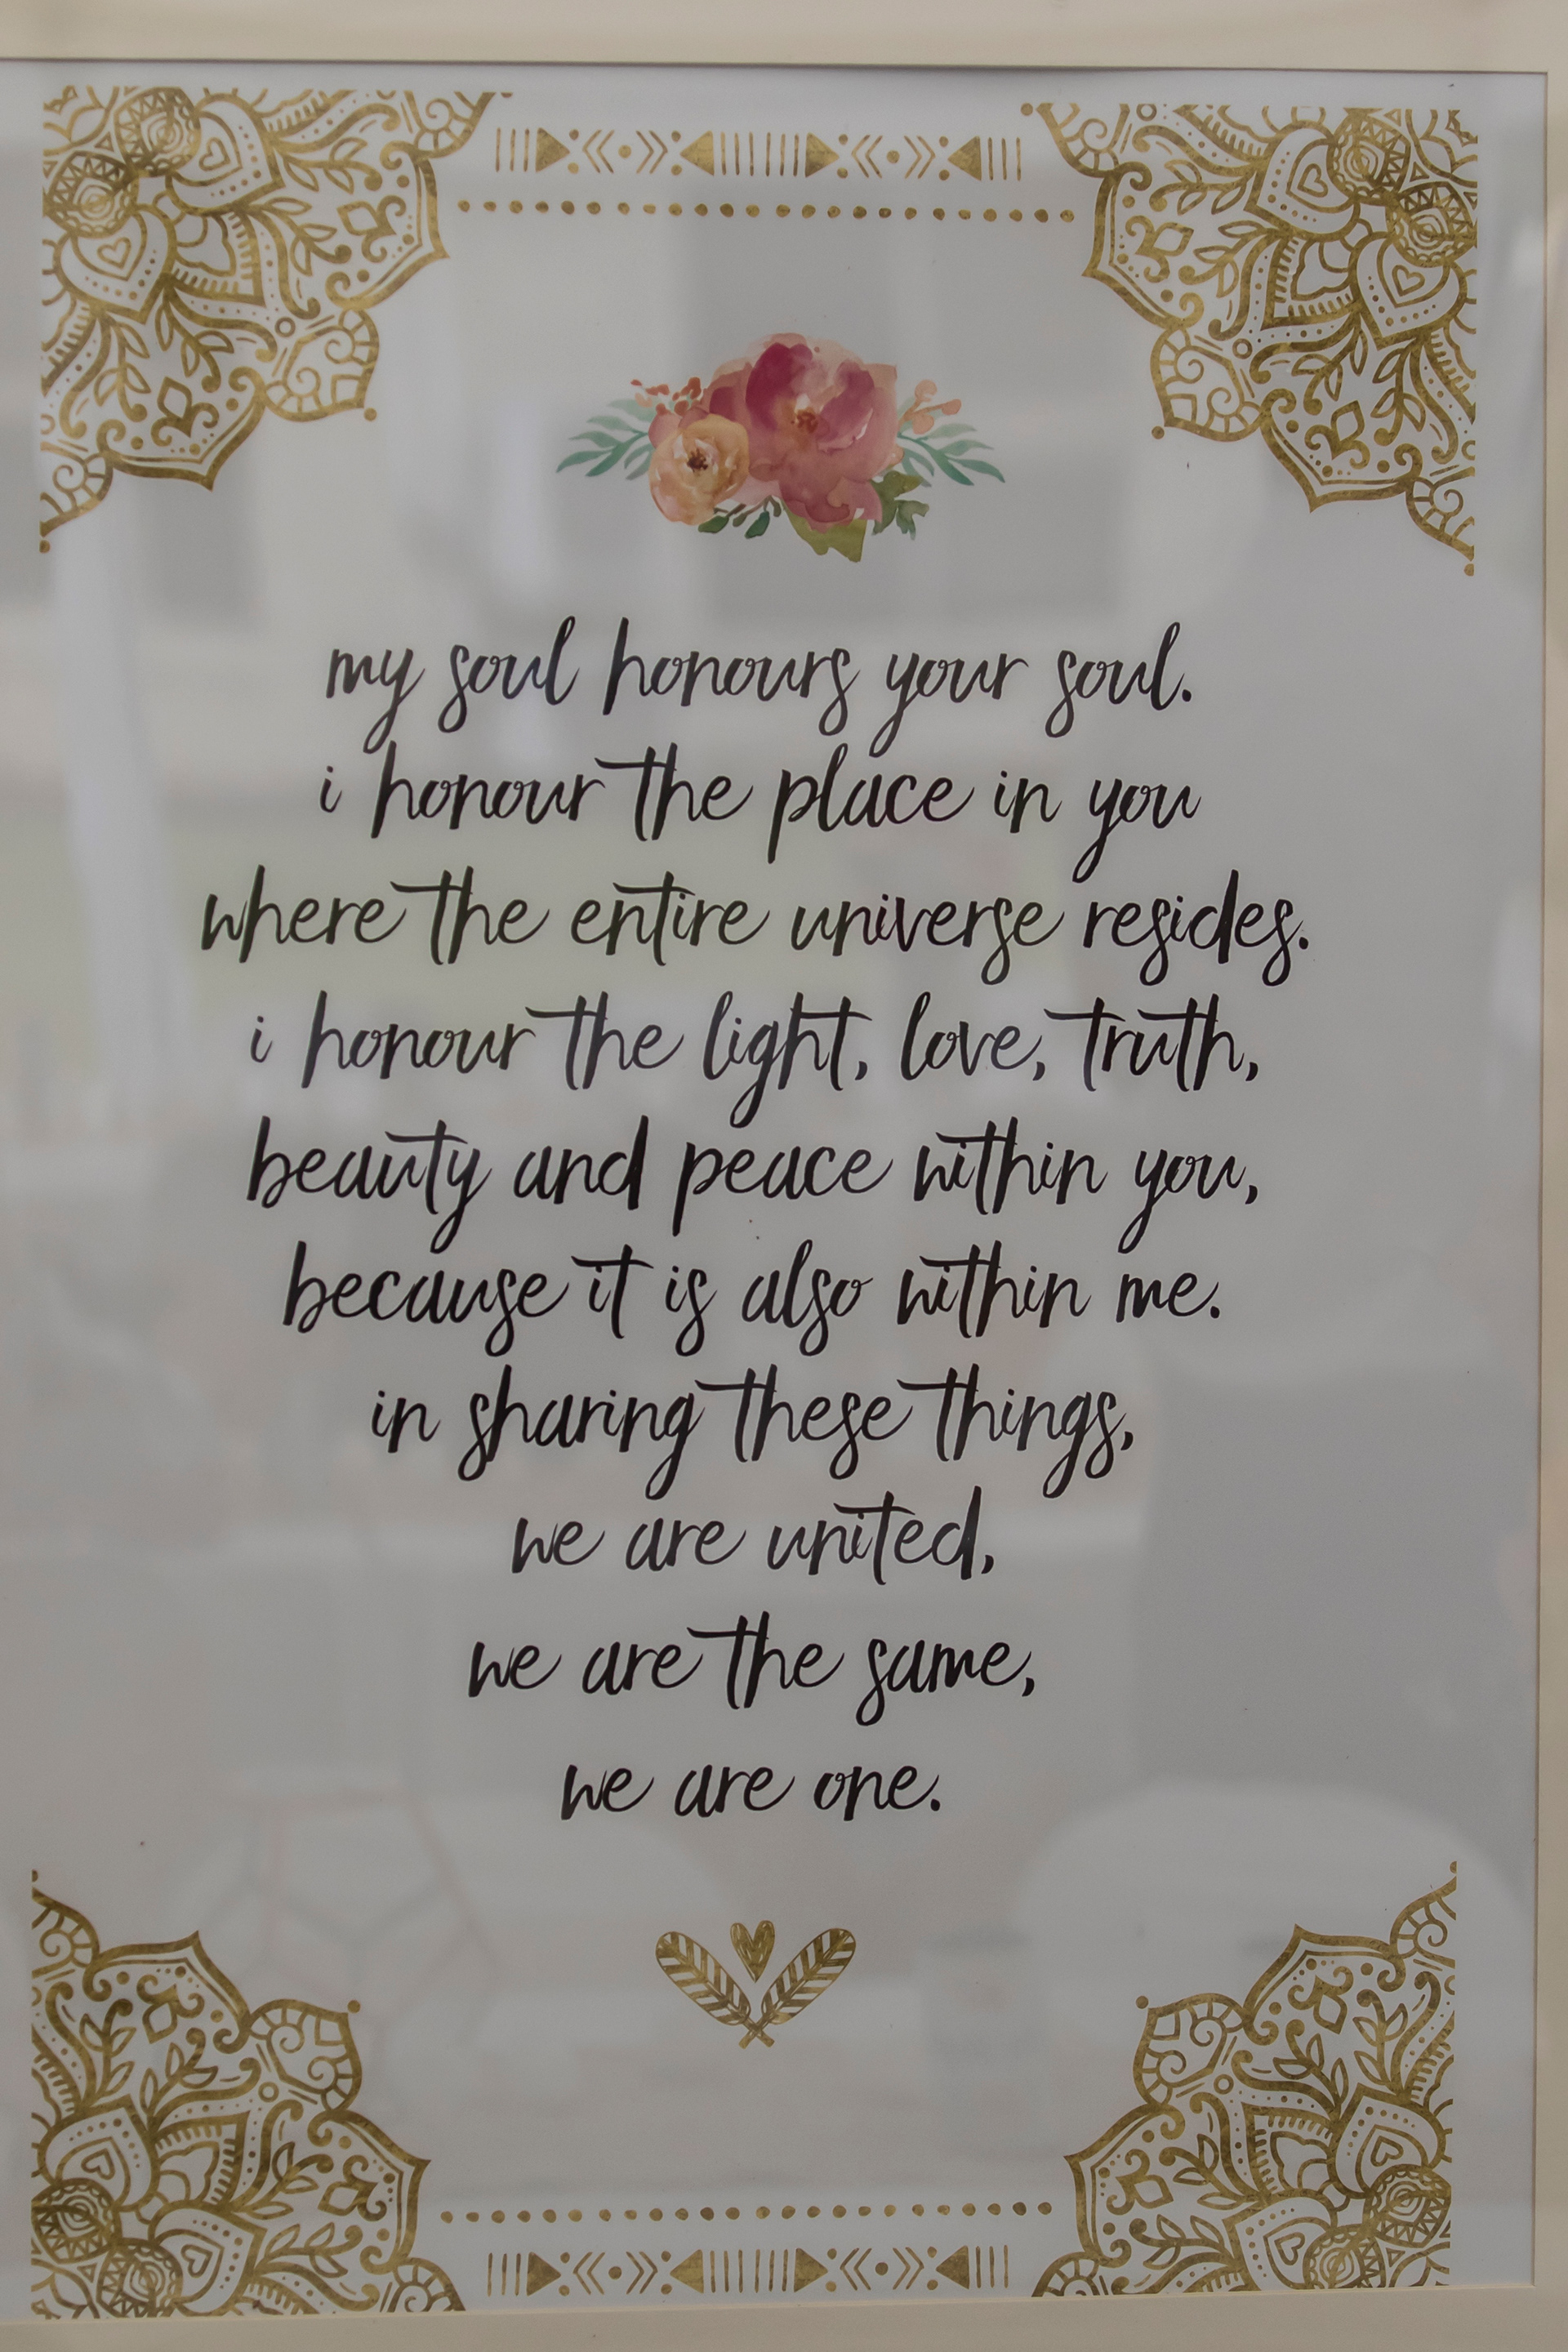 my soul honours your soul.
i honour the place in you
where the entire universe resides.
i honour the light, love, truth,
beauty and peace within you,
because it is also within me.
in sharing these things,
we are united,
we are the same,
we are one.